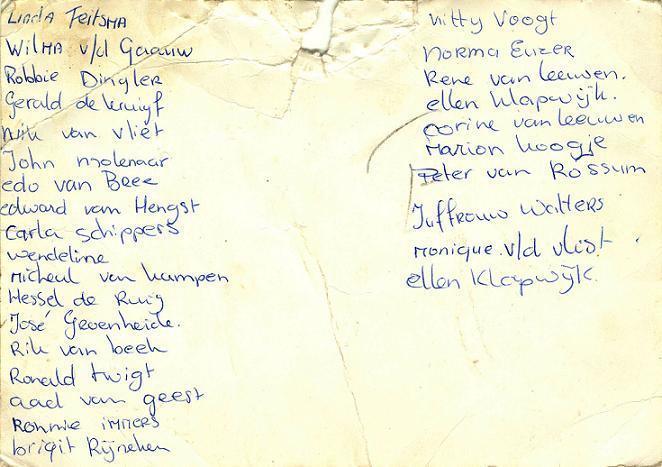 Linda Feitsma
Wilma v/d Gaauw
Robbie Dingler
Gerald de Kruijf
Nik van vliet
John molenaar
edo van Beek
edward van Hengst
Carla Schippers
wendeline
micheal van kampen
Hessel de Ruig
José Gevenheide.
Rik van beek
Ronald twigt
aad van geest
Ronnie immers
brigit Rijneken
kitty Voogt
Norma Euzer
Rene van leeuwen.
ellen Klapwijk.
Corine van leeuwen
Marion koogje
Peter van Rossum
Juffrouw Walters
Monique v/d vlist
ellen Klapwijk.